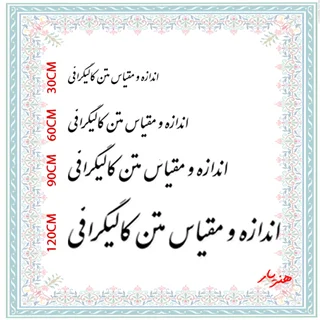 30CM اندازه و مقیاس متن کالیگرافی
60CM اندازه و مقیاس متن کالیگرافی
90CM اندازه و مقیاس متن کالیگرافی
120CM اندازه و مقیاس متن کالیگرافی
هنریار